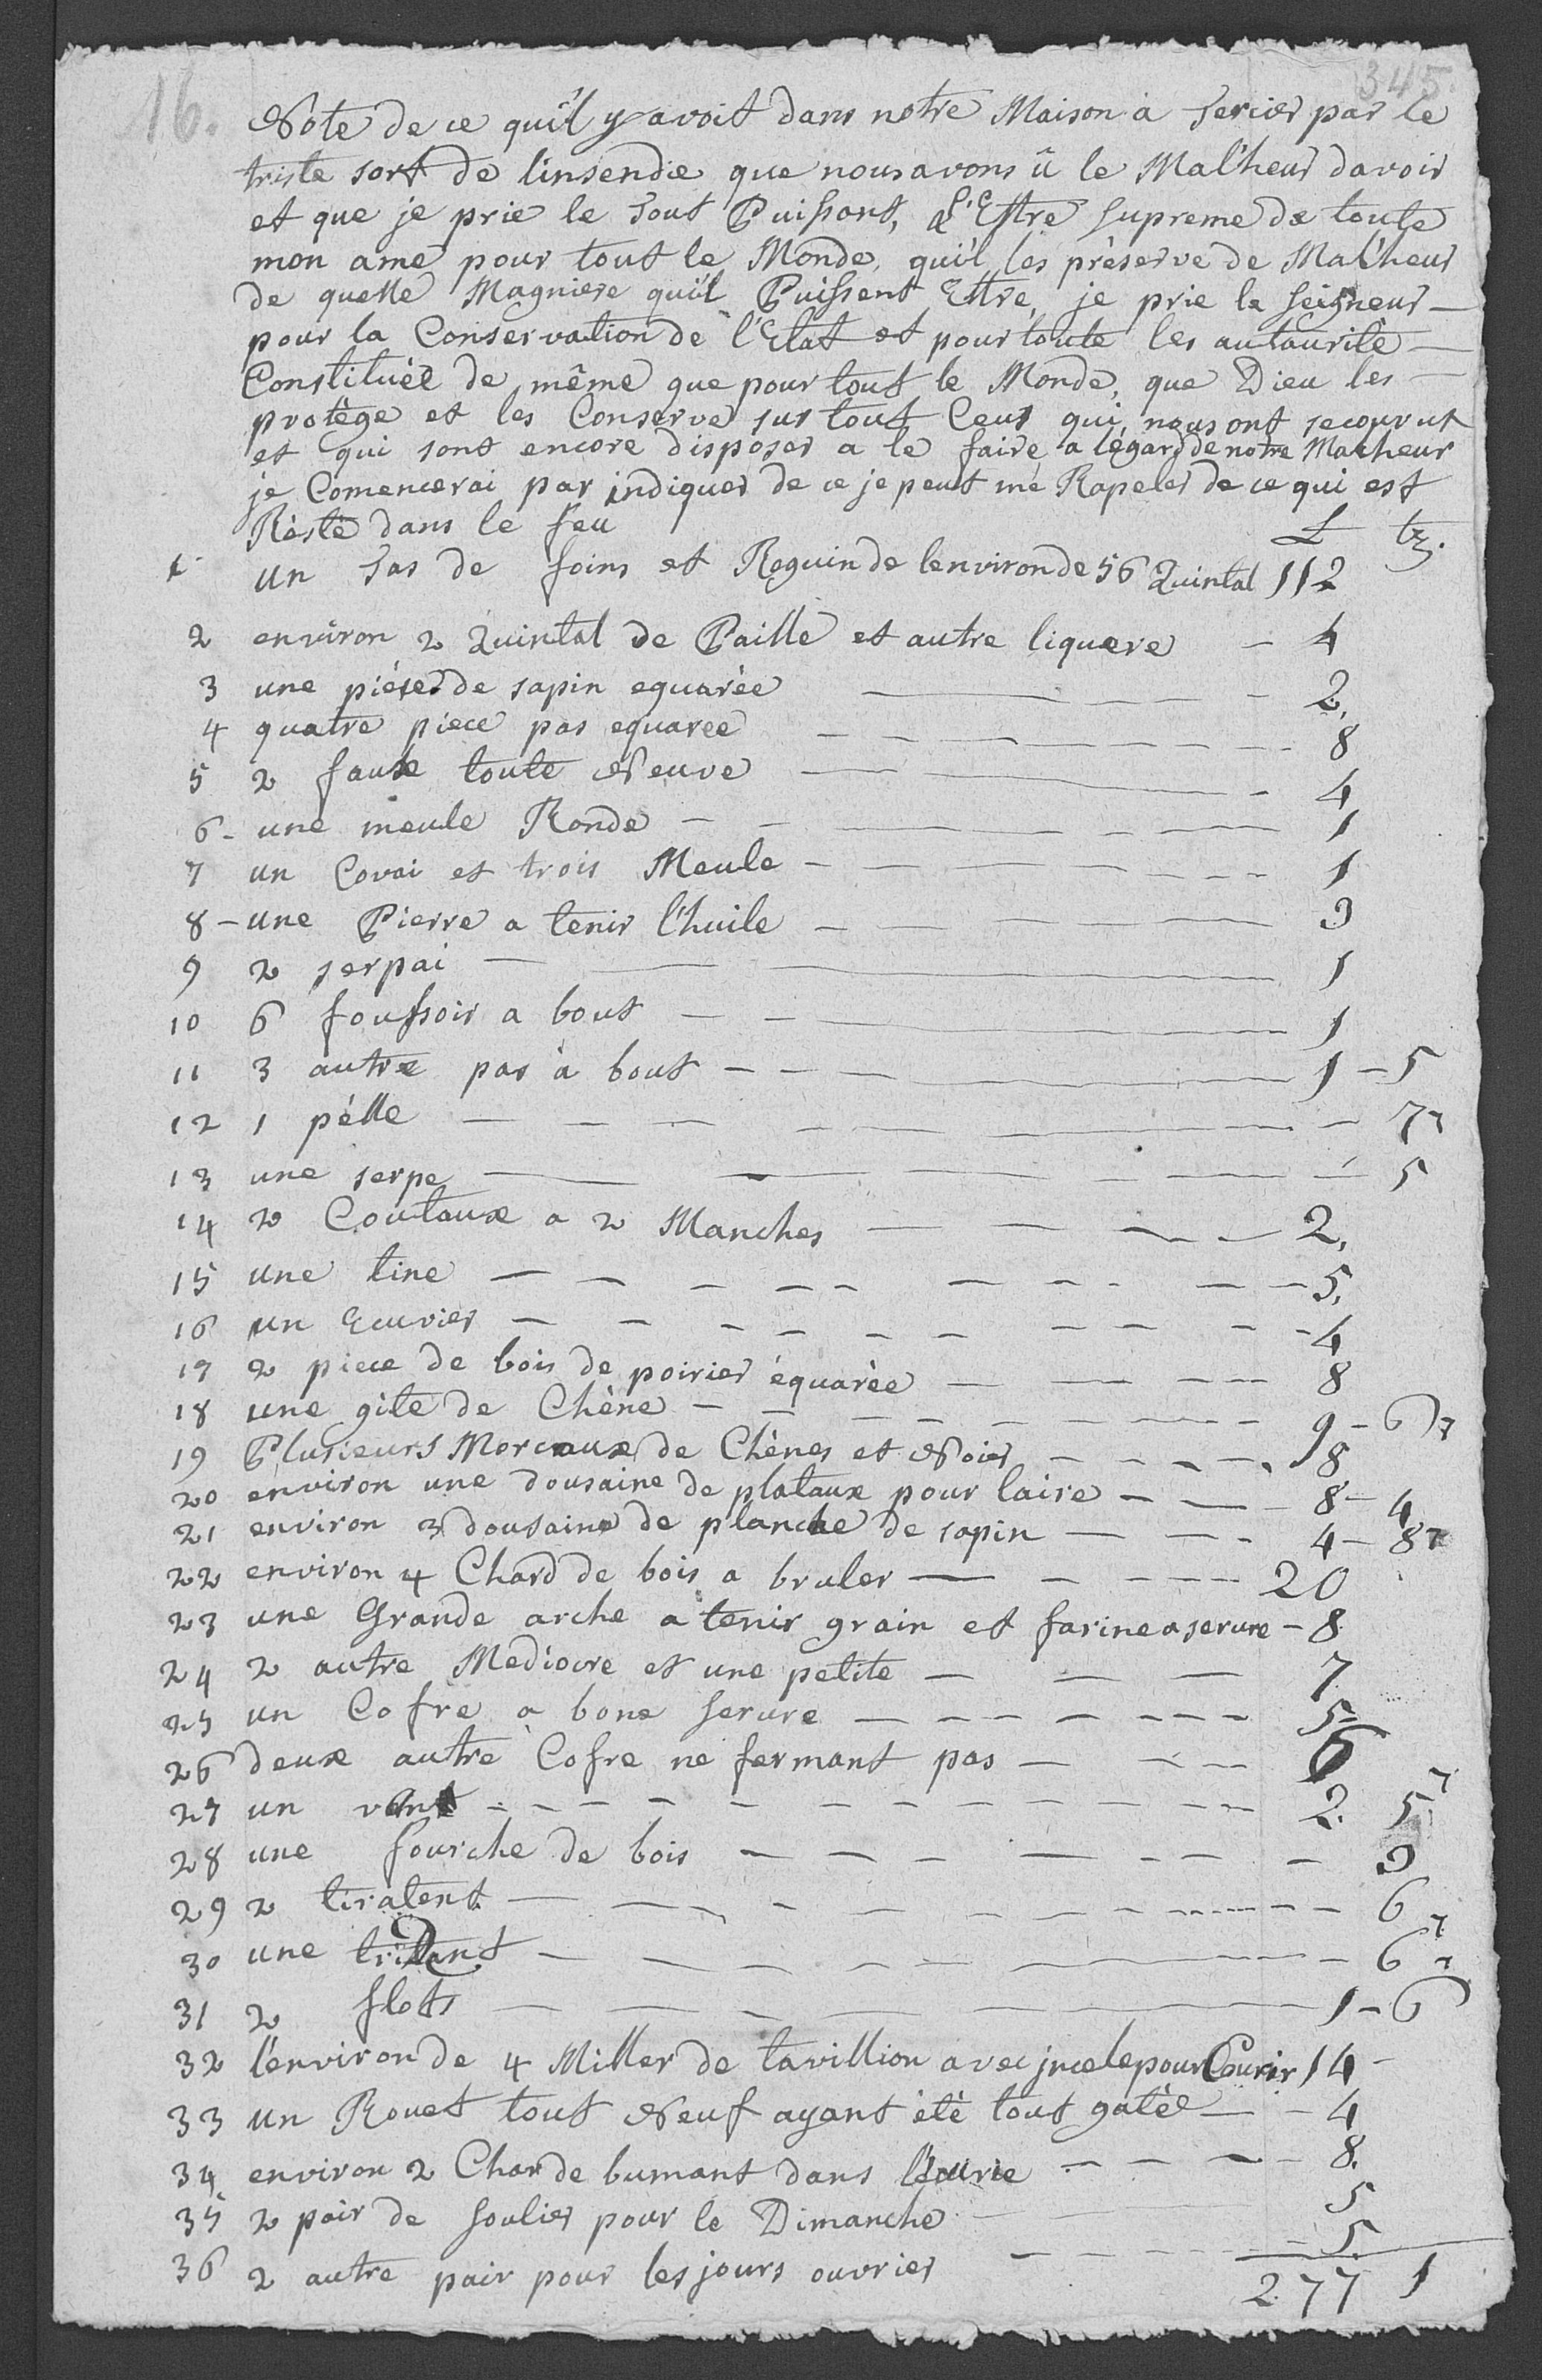 16. 345.
Note de ce quil y avoit dans notre Maison à Tercier par le
triste sort de linsendie que nous avons û le Malheur davoir
et que je prie le Tout Puissant, L'Estre Supreme de toute
mon ame pour tout le Monde, qu'il les préserve de Malheur
de quelle Magniere quil Puissent Estre, je prie le Seigneur
pour la Conservation de l'Etat et pour toute les autaurité
Constituéé de même que pour tout le Monde, que Dieu les
protège et les Conserve sur tout Ceux qui nous ont secourut
et qui sont encore disposer a le faire a légard de notre Malheur
je Comencerai par indiquer de ce je peut me Rapeler de ce qui est
Résté dans le feu L bz.
1 un Tas de foins et Reguin de lenviron de 56 Quintal 112
2 environ 2 Quintal de Paille et autre liquere - 4
3 une piéce de sapin equarée 2.
4 quatre piece pas equaree 8
5 2 faulx toute Neuve 4
6 - une meule Ronde 1
7 un Covai et trois Meule 1
8 - une Pierre a tenir l'huile 3
9 2 serpai 1
10 6 foussoir a bout 1
11 3 autre pas à bout 1 - 5
12 1 pélle 7
13 une serpe 5
14 2 Coutaux a 2 Manches 2.
15 une tine 5.
16 un Ecuvier 4
17 2 piece de bois de poirier équarée 8
18 une gite de Chêne 9 - 6
19 Plusieurs Morceaux de Chênes et Noier 8
20 environ une dousaine de plataux pour laire 8 - 4
21 environ 3 dousaine de planche de sapin 4 - 8
22 environ 4 Chard de bois a bruler 20
23 une Grande arche a tenir grain et farine a serure - 8
24 2 autre Mediocre et une petite 7
25 un Cofre a bone serure 5
26 deux autre Cofre ne fermant pas 6
27 un vant 2. 5
28 une fourche de bois 3
29 2 tiratent 6
30 une tridant 6
31 2 flots 1 - 6
32 lenviron de 4 Miller de tavillion avec pour Couvrir 14 -
33 un Rouet tout Neuf ayant été tout gatée - 4
34 environ 2 Char de bumant dans l'Ecurie 8.
35 2 pair de soulier pour le Dimanche 5
36 2 autre pair pour les jours ouvrier 5.
277 1